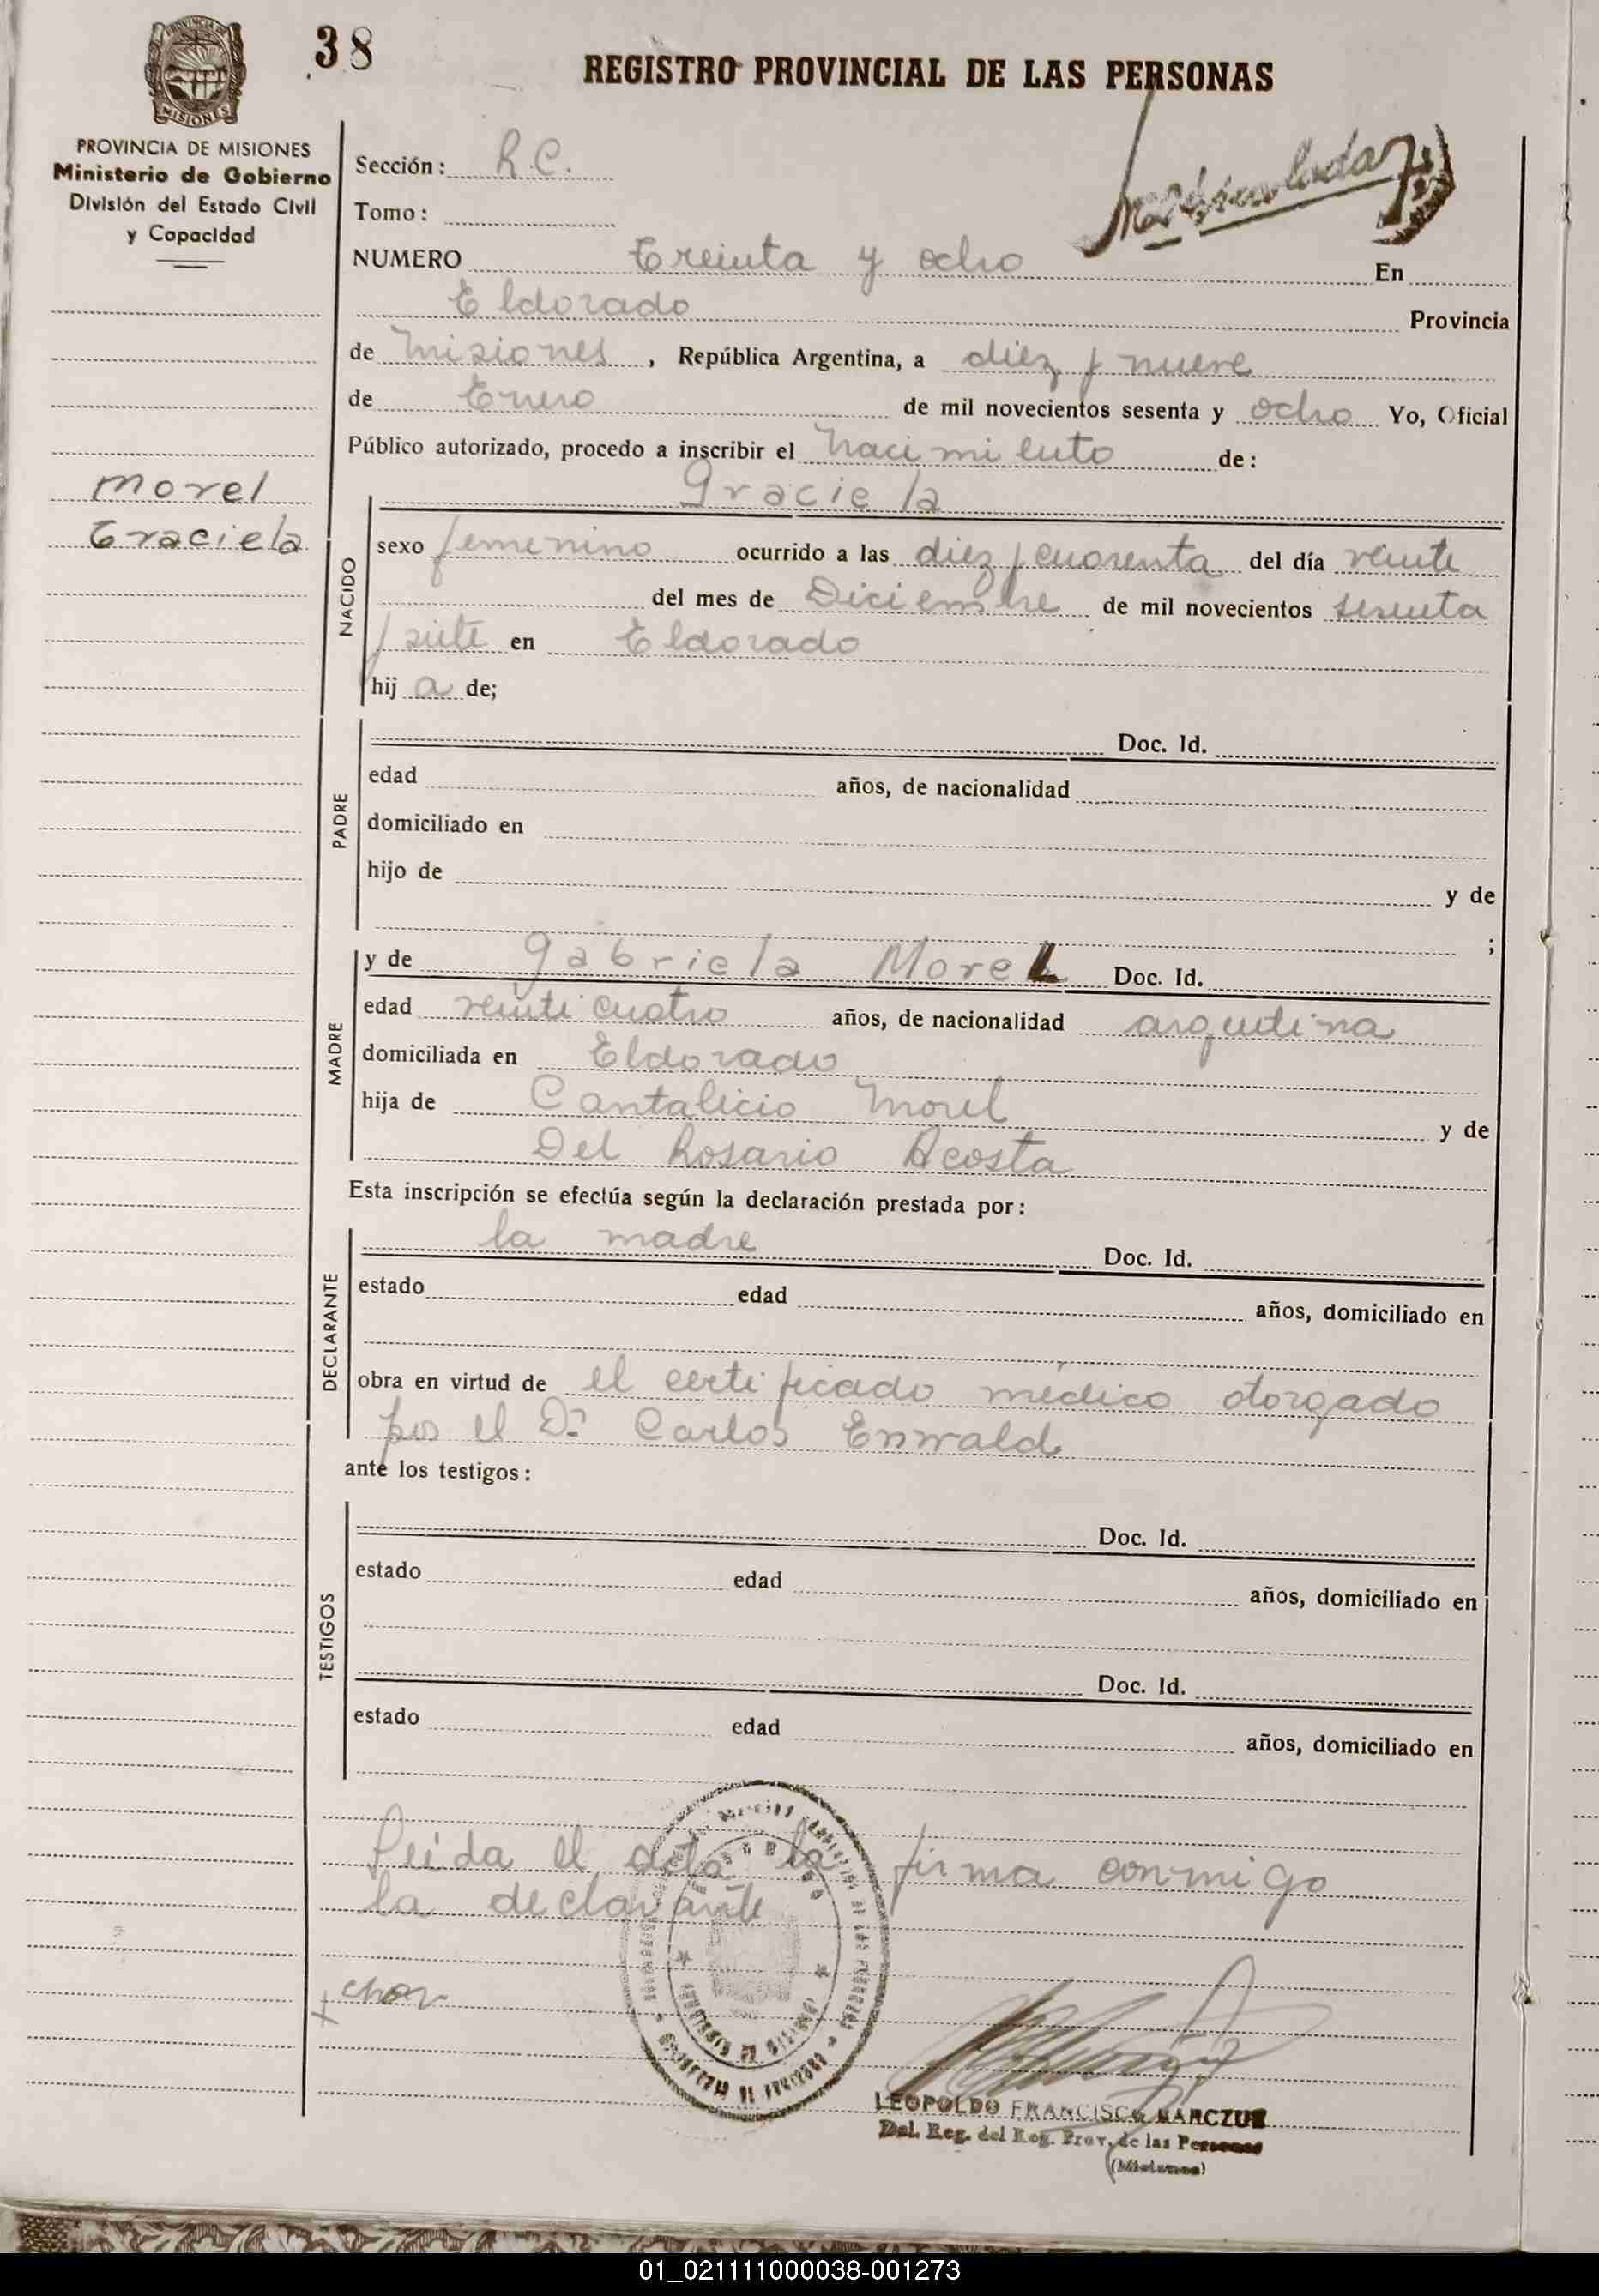 38
REGISTRO PROVINCIAL DE LAS PERSONAS
MISIONES
PROVINCIA DE MISIONES
Ministerio de Gobierno
División del Estado Civil
y Capacidad
Morel
Graciela
Sección: R.C.
Matriculada
Tomo:
NUMERO Treinta y ocho En
Eldorado Provincia
de Misiones, República Argentina, a diez y nueve
de Enero de mil novecientos sesenta y ocho Yo, Oficial
Público autorizado, procedo a inscribir el nacimiento de:
Graciela
NACIDO
sexo femenino ocurrido a las diez y cuarenta del día veinte
del mes de Diciembre de mil novecientos sesenta
y siete en Eldorado
hij a de;
PADRE
Doc. Id.
edad años, de nacionalidad
domiciliado en
hijo de y de
;
MADRE
y de Gabriela Morel Doc. Id.
edad veinticuatro años, de nacionalidad argentina
domiciliada en Eldorado
hija de Cantalicio Morel y de
Del Rosario Acosta
Esta inscripción se efectúa según la declaración prestada por:
DECLARANTE
la madre Doc. Id.
estado edad años, domiciliado en
obra en virtud de el certificado médico otorgado
por el Dr. Carlos
ante los testigos:
TESTIGOS
Doc. Id.
estado edad años, domiciliado en
Doc. Id.
estado edad años, domiciliado en
Leida el acta la firma conmigo
la declarante
LEOPOLDO FRANCISCO
Del. Reg. del Reg. Prov. de las Personas
(Misiones)
01_021111000038-001273